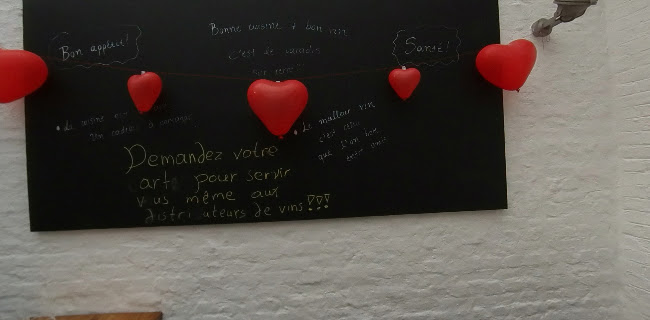 Bon appétit!
Bonne cuisine & bon vin
c'est le paradis
sur terre
Santé!
• La
un cadeau à
• Le meilleur vin
c'est celui
que l'on boit
entre amis
Demandez votre
arte pour servir
v us même aux
distri uteurs de vins!!!